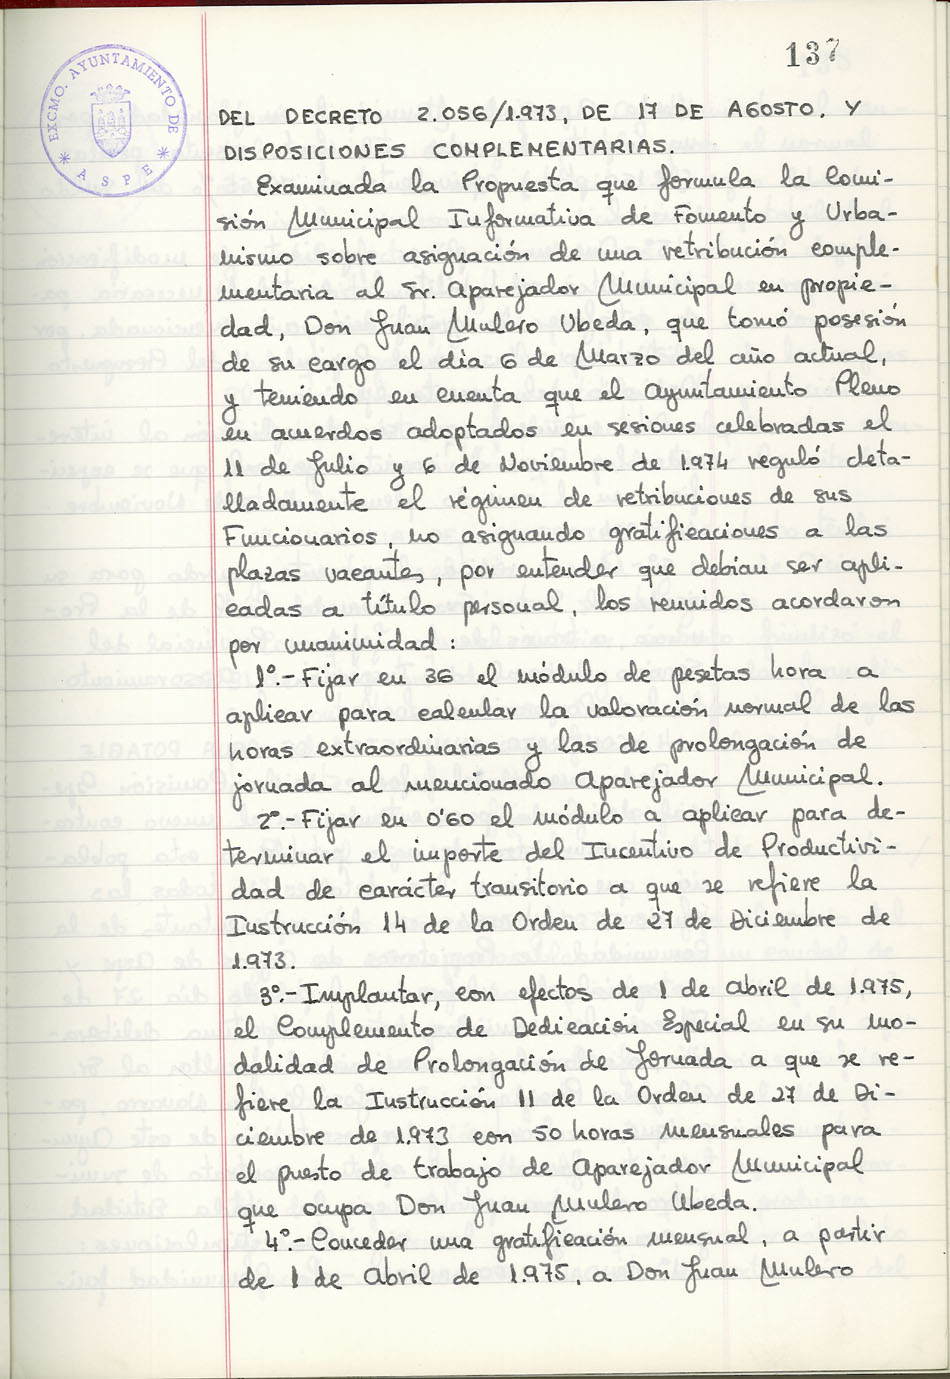 137
EXCMO. AYUNTAMIENTO DE
* ASPE *
DEL DECRETO 2.056/1.973, DE 17 DE AGOSTO, Y
DISPOSICIONES COMPLEMENTARIAS.
Examinada la Propuesta que formula la Comi-
sión Municipal Informativa de Fomento y Urba-
nismo sobre asignación de una retribución comple-
mentaria al Sr. Aparejador Municipal en propie-
dad, Don Juan Mulero Ubeda, que tomó posesión
de su cargo el día 6 de Marzo del año actual,
y teniendo en cuenta que el Ayuntamiento Pleno
en acuerdos adoptados en sesiones celebradas el
11 de Julio y 6 de Noviembre de 1.974 reguló deta-
lladamente el régimen de retribuciones de sus
Funcionarios, no asignando gratificaciones a las
plazas vacantes, por entender que debían ser apli-
cadas a título personal, los reunidos acordaron
por unanimidad:
1º.- Fijar en 36 el módulo de pesetas hora a
aplicar para calcular la valoración normal de las
horas extraordinarias y las de prolongación de
jornada al mencionado Aparejador Municipal.
2º.- Fijar en 0'60 el módulo a aplicar para de-
terminar el importe del Incentivo de Productivi-
dad de carácter transitorio a que se refiere la
Instrucción 14 de la Orden de 27 de Diciembre de
1.973.
3º.- Implantar, con efectos de 1 de Abril de 1.975,
el Complemento de Dedicación Especial en su mo-
dalidad de Prolongación de Jornada a que se re-
fiere la Instrucción 11 de la Orden de 27 de Di-
ciembre de 1.973 con 50 horas mensuales para
el puesto de trabajo de Aparejador Municipal
que ocupa Don Juan Mulero Ubeda.
4º.- Conceder una gratificación mensual, a partir
de 1 de Abril de 1.975, a Don Juan Mulero